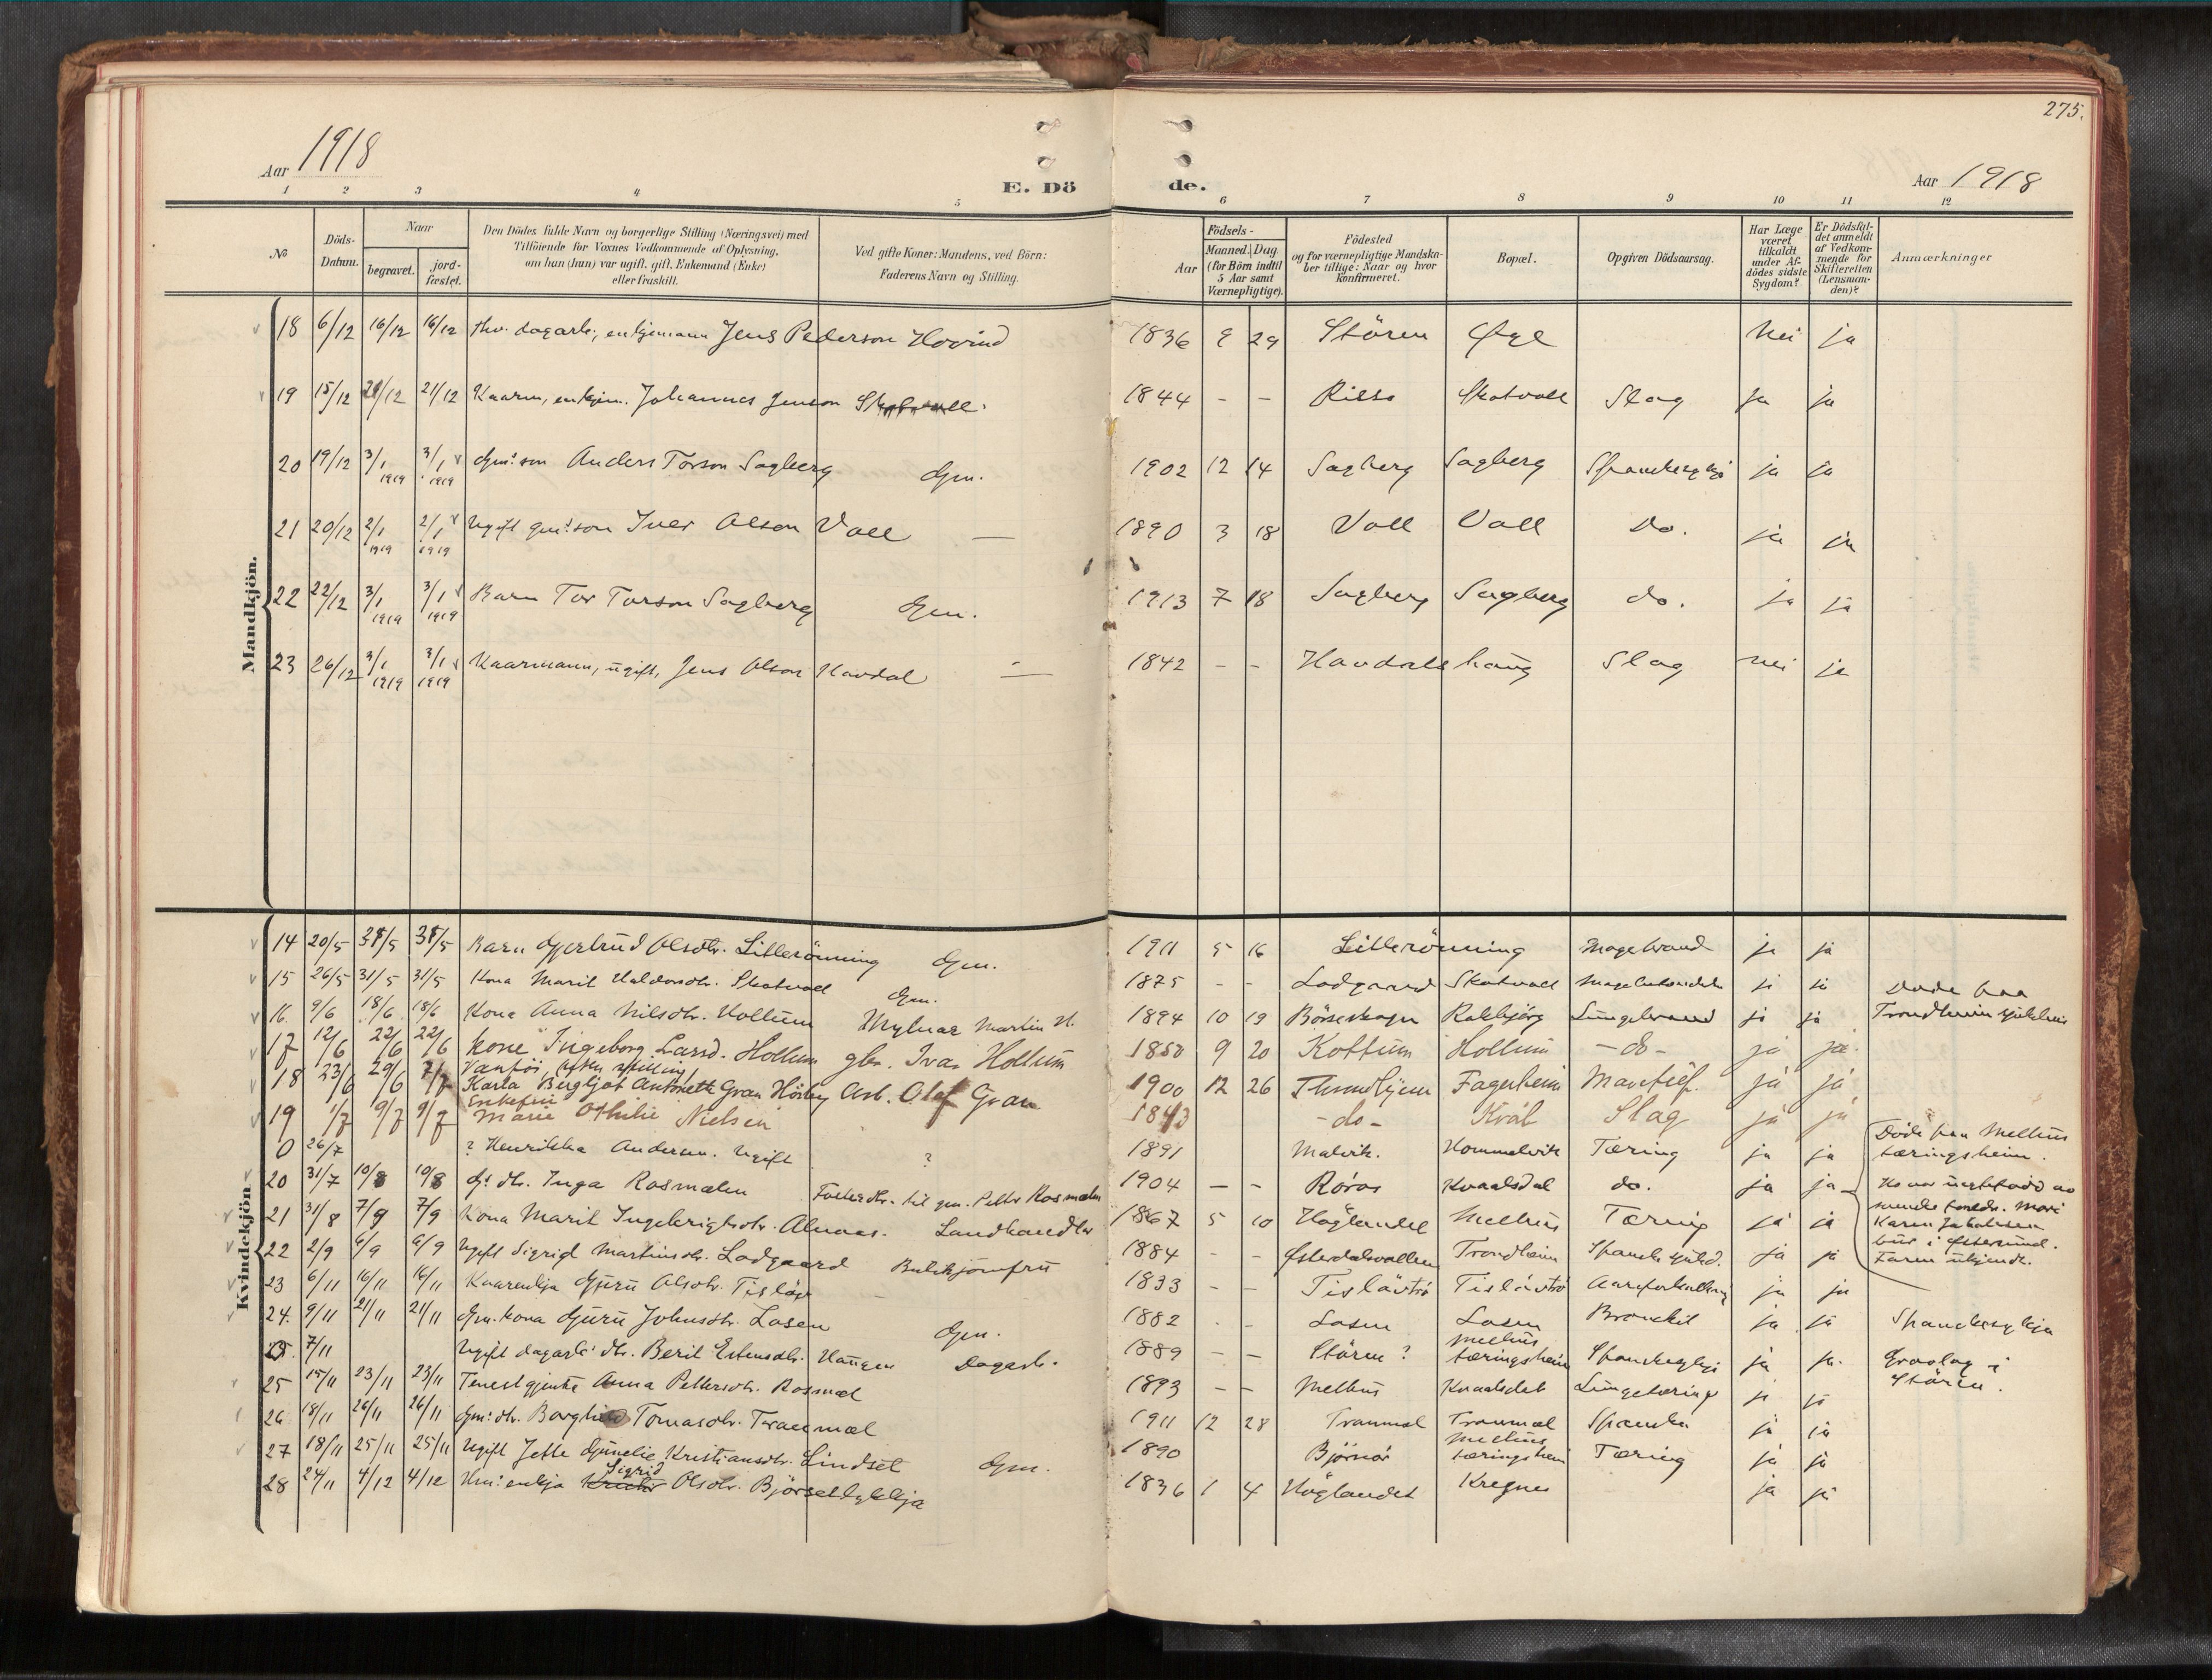 275.
Aar 1918
E. Döde.
Aar 1918
1 2 3 4 5 6 7 8 9 10 11 12
No
Döds-Datum.
Naar
begravet.
jord-fæstet.
Den Dödes fulde Navn og borgerlige Stilling (Næringsvei) med
Tilföiende for Voxnes Vedkommende af Oplysning,
om han (hun) var ugift, gift, Enkemand (Enke)
eller fraskilt.
Ved gifte Koner: Mandens, ved Börn:
Faderens Navn og Stilling.
Aar
Födsels-
Maaned. Dag.
(for Börn indtil
5 Aar samt
Værnepligtige).
Födested
og for værnepligtige Mandska-
ber tillige: Naar og hvor
Konfirmeret.
Bopæl.
Opgiven Dödsaarsag.
Har Læge
været
tilkaldt
under Af-
dödes sidste
Sygdom?
Er Dödsfal-
det anmeldt
af Vedkom-
mende for
Skifteretten
(Lensman-
den)?
Anmærkninger
Mandkjön.
18 6/12 16/12 16/12 fhv. dagarb., enkjemann Jens Pederson Hovind 1836 9 29 Stören Øye nei ja
19 15/12 21/12 21/12 Kaarm, enkjm. Johannes Jenson Skatvoll 1844 - - Rissa Skatvoll Slag ja ja
20 19/12 3/1 1919 3/1 1919 Gm: son Anders Torson Sagberg Gm. 1902 12 14 Sagberg Sagberg Spanskesykja ja ja
21 20/12 2/1 1919 2/1 1919 Ugift gm: son Iver Olson Voll — 1890 3 18 Voll Voll do. ja ja
22 22/12 3/1 1919 3/1 1919 Barn Tor Torson Sagberg Gm. 1913 7 18 Sagberg Sagberg do. ja ja
23 26/12 3/1 1919 3/1 1919 Kaarmann, ugift, Jens Olson Havdal — 1842 - - Havdalshaug Slag nei ja
Kvindekjön.
14 20/5 31/5 31/5 Barn Gjertrud Olsdtr. Litlerönning Gm. 1911 5 16 Litlerönning Magebrand ja ja
15 26/5 31/5 31/5 Kona Marit Haldorsdtr. Skatvoll Gm. 1875 - - Lodgaard Skatvoll ja ja
16 9/6 18/6 18/6 Kona Anna Nilsdtr. Hollum Mylnar Martin H. 1894 10 19 Börseskogn Rakbjörg Lungebrand ja ja Döde paa
Trondheim sjukehus
17 12/6 22/6 22/6 kone Ingeborg Larsd. Hollum gbr. Ivar Hollum 1850 9 20 Kottum Hollum - do - ja ja.
18 23/6 29/6 7/7 Karla Bergljot Antonette Gran Höiby Arb. Olaf Gran 1900 12 26 Throndhjem Fagerheim ja ja
19 1/7 9/7 9/7 Enkefru
Marie Othilie Nielsen 1843 - do - Kval Slag ja ja
0 26/7 ? Henrikka Andersen. Ugift ? 1891 Malvik. Hommelvik Tæring ja ja Döde paa Melhus
tæringsheim.
20 31/7 10/8 10/8 G: dtr. Inga Rosmælen Fosterdtr. til gm. Petter Rosmælen 1904 - - Röros Kvaalsdal do. ja ja
Karen Jakobsen
bur i Østersund.
Faren ukjendt.
21 31/8 7/9 7/9 Kona Marit Ingebrigtsdtr. Alnaas. Landhandler 1867 5 10 Höglandet Melhus Tæring ja ja
22 2/9 9/9 9/9 Ugift Sigrid Martinsdtr. Lodgaard Butikjomfru 1884 - - Østerdalsvollen Trondheim Spansk sykd. ja ja
23 6/11 16/11 16/11 Kaarenkja Guru Olsdtr. Tislöv 1833 - - Tislövtrö Tislövtrö Aareforkalkning ja ja
24. 9/11 21/11 21/11 Gm. kona Guru Johnsdtr. Losen Gm. 1882 - - Losen Losen Bronkit ja ja Spanskesykja
0. 7/11 Ugift dagarb: dtr. Berit Estensdtr. Haugen Dagarb. 1889 - - Stören? Melhus
tæringsheim Spanskesykja ja ja. Gravlag i
Stören.
25 15/11 23/11 23/11 Tenestgjente Anna Pettersdtr. Rosmæl 1893 - - Melhus Kvaalsdal Lungetæring ja ja
26 18/11 26/11 26/11 Gm: dtr. Borghild Tomasdtr. Tranmæl 1911 12 28 Tranmæl Tranmæl Spanska ja ja
27 18/11 25/11 25/11 Ugift Jette Gunelie Kristiansdtr. Lindset Gm. 1890 Björnör Melhus
tæringsheim Tæring ja ja
28 24/11 4/12 4/12 Hm: enkja Sigrid Olsdtr. Björsetlykkja 1836 1 4 Höglandet Kregnes ja ja